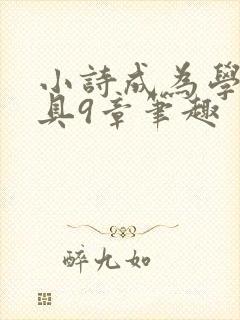 小詩成為學
具9章筆趣
醉九如